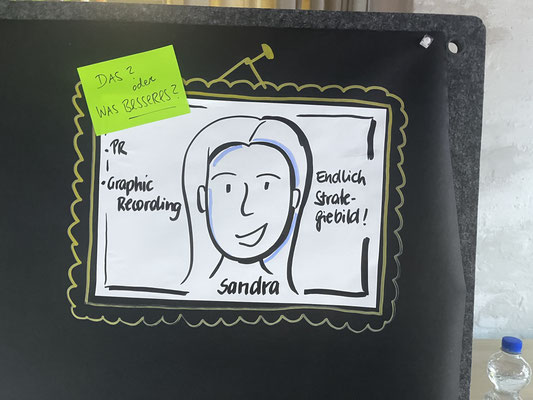 DAS?
oder
WAS BESSERES?
• PR
• Graphic
Recording
Endlich
Strate-
giebild!
Sandra